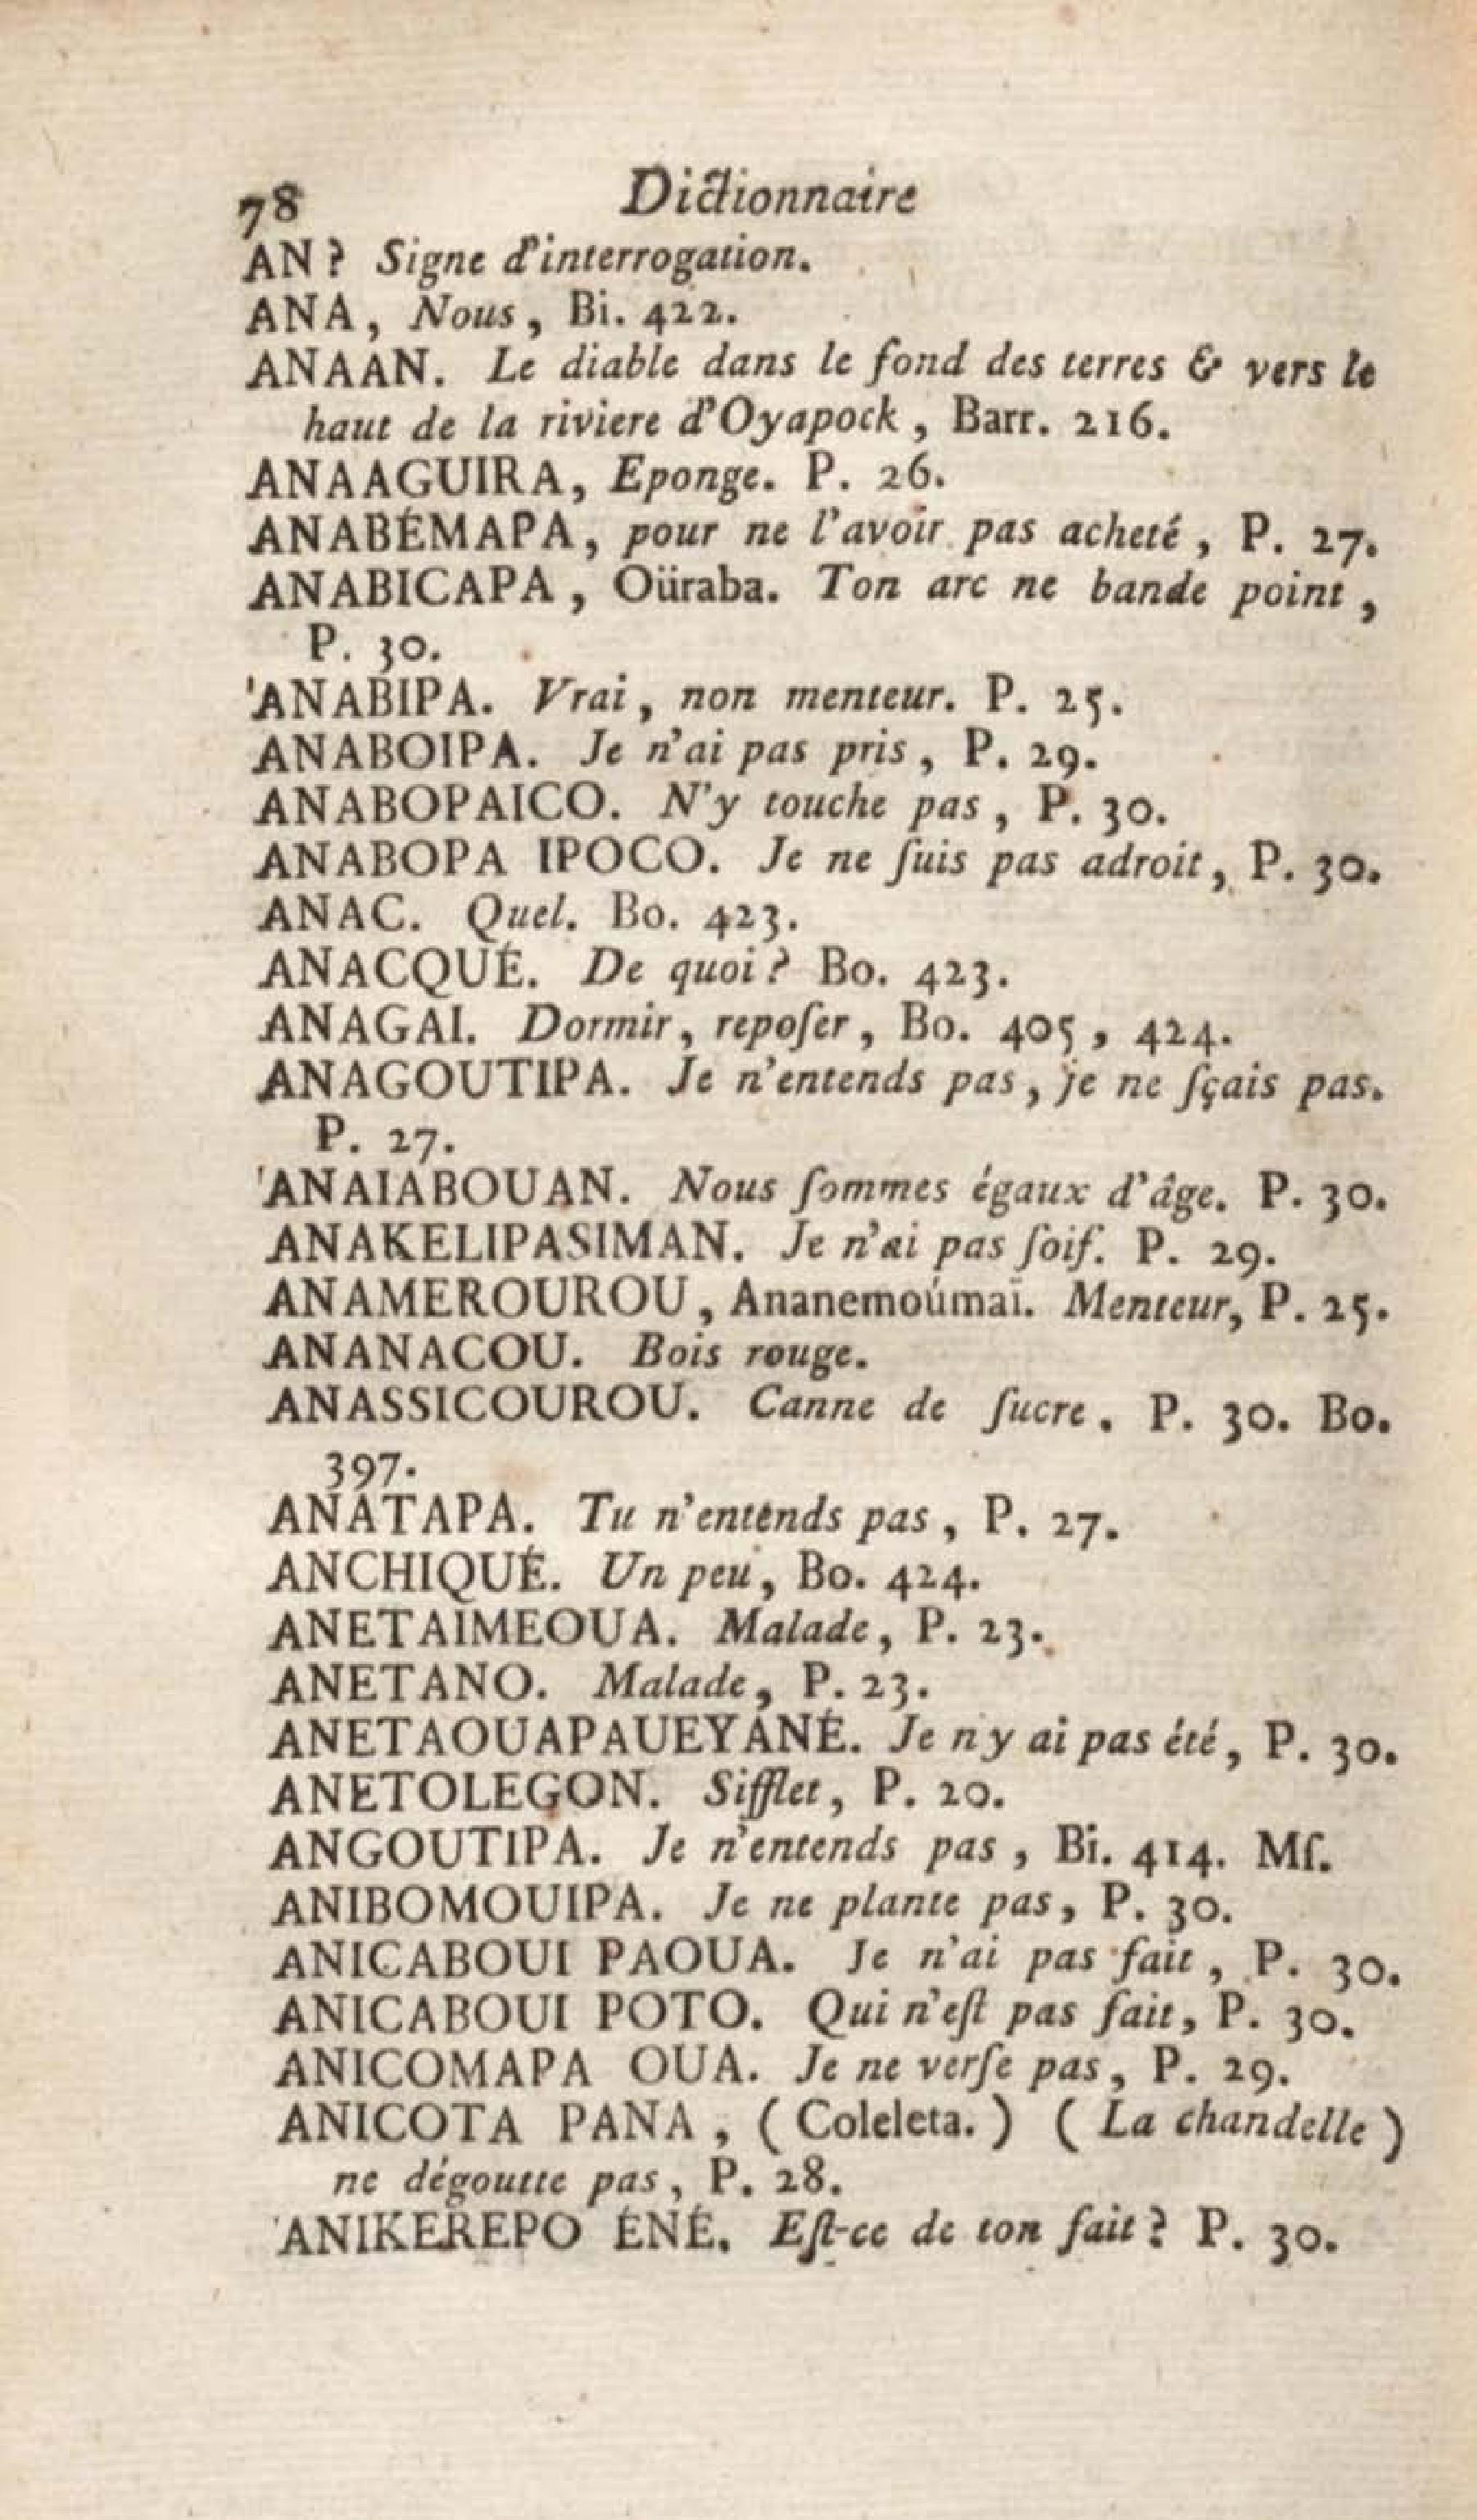 78 Dictionnaire
AN? Signe d'interrogation.
ANA, Nous, Bi. 422.
ANAAN. Le diable dans le fond des terres & vers le
haut de la riviere d'Oyapock, Barr. 216.
ANAAGUIRA, Eponge. P. 26.
ANABÉMAPA, pour ne l'avoir pas acheté, P. 27.
ANABICAPA, Oüraba. Ton arc ne bande point,
P. 30.
'ANABIPA. Vrai, non menteur. P. 25.
ANABOIPA. Je n'ai pas pris, P. 29.
ANABOPAICO. N'y touche pas, P. 30.
ANABOPA IPOCO. Je ne ſuis pas adroit, P. 30.
ANAC. Quel. Bo. 423.
ANACQUÉ. De quoi? Bo. 423.
ANAGAI. Dormir, repoſer, Bo. 405, 424.
ANAGOUTIPA. Je n'entends pas, je ne ſçais pas.
P. 27.
'ANAIABOUAN. Nous ſommes égaux d'âge. P. 30.
ANAKELIPASIMAN. Je n'ai pas ſoif. P. 29.
ANAMEROUROU, Ananemoúmaï. Menteur, P. 25.
ANANACOU. Bois rouge.
ANASSICOUROU. Canne de ſucre. P. 30. Bo.
397.
ANATAPA. Tu n'entends pas, P. 27.
ANCHIQUÉ. Un peu, Bo. 424.
ANETAIMEOUA. Malade, P. 23.
ANETANO. Malade, P. 23.
ANETAOUAPAUEYANÉ. Je n'y ai pas été, P. 30.
ANETOLEGON. Sifflet, P. 20.
ANGOUTIPA. Je n'entends pas, Bi. 414. Mſ.
ANIBOMOUIPA. Je ne plante pas, P. 30.
ANICABOUI PAOUA. Je n'ai pas fait, P. 30.
ANICABOUI POTO. Qui n'eſt pas fait, P. 30.
ANICOMAPA OUA. Je ne verſe pas, P. 29.
ANICOTA PANA, (Coleleta.) (La chandelle)
ne dégoutte pas, P. 28.
'ANIKEREPO ÉNÉ. Eſt-ce de ton fait? P. 30.